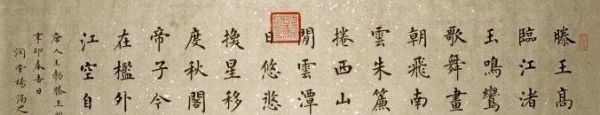 滕王高
臨江渚
玉鳴鸞
歌舞畫
朝飛南
雲朱簾
捲西山
閒雲潭
日悠悠
換星移
度秋閣
帝子今
在檻外
江空自
唐人王勃滕王
辛卯春吉日